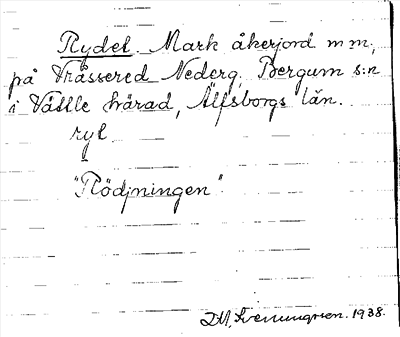 Rydet. Mark åkerjord m m,
på Vrässered Nederg. Bergum s:n
i Vättle härad, Älfsborgs län.
ryl
"Rödjningen"
1938.